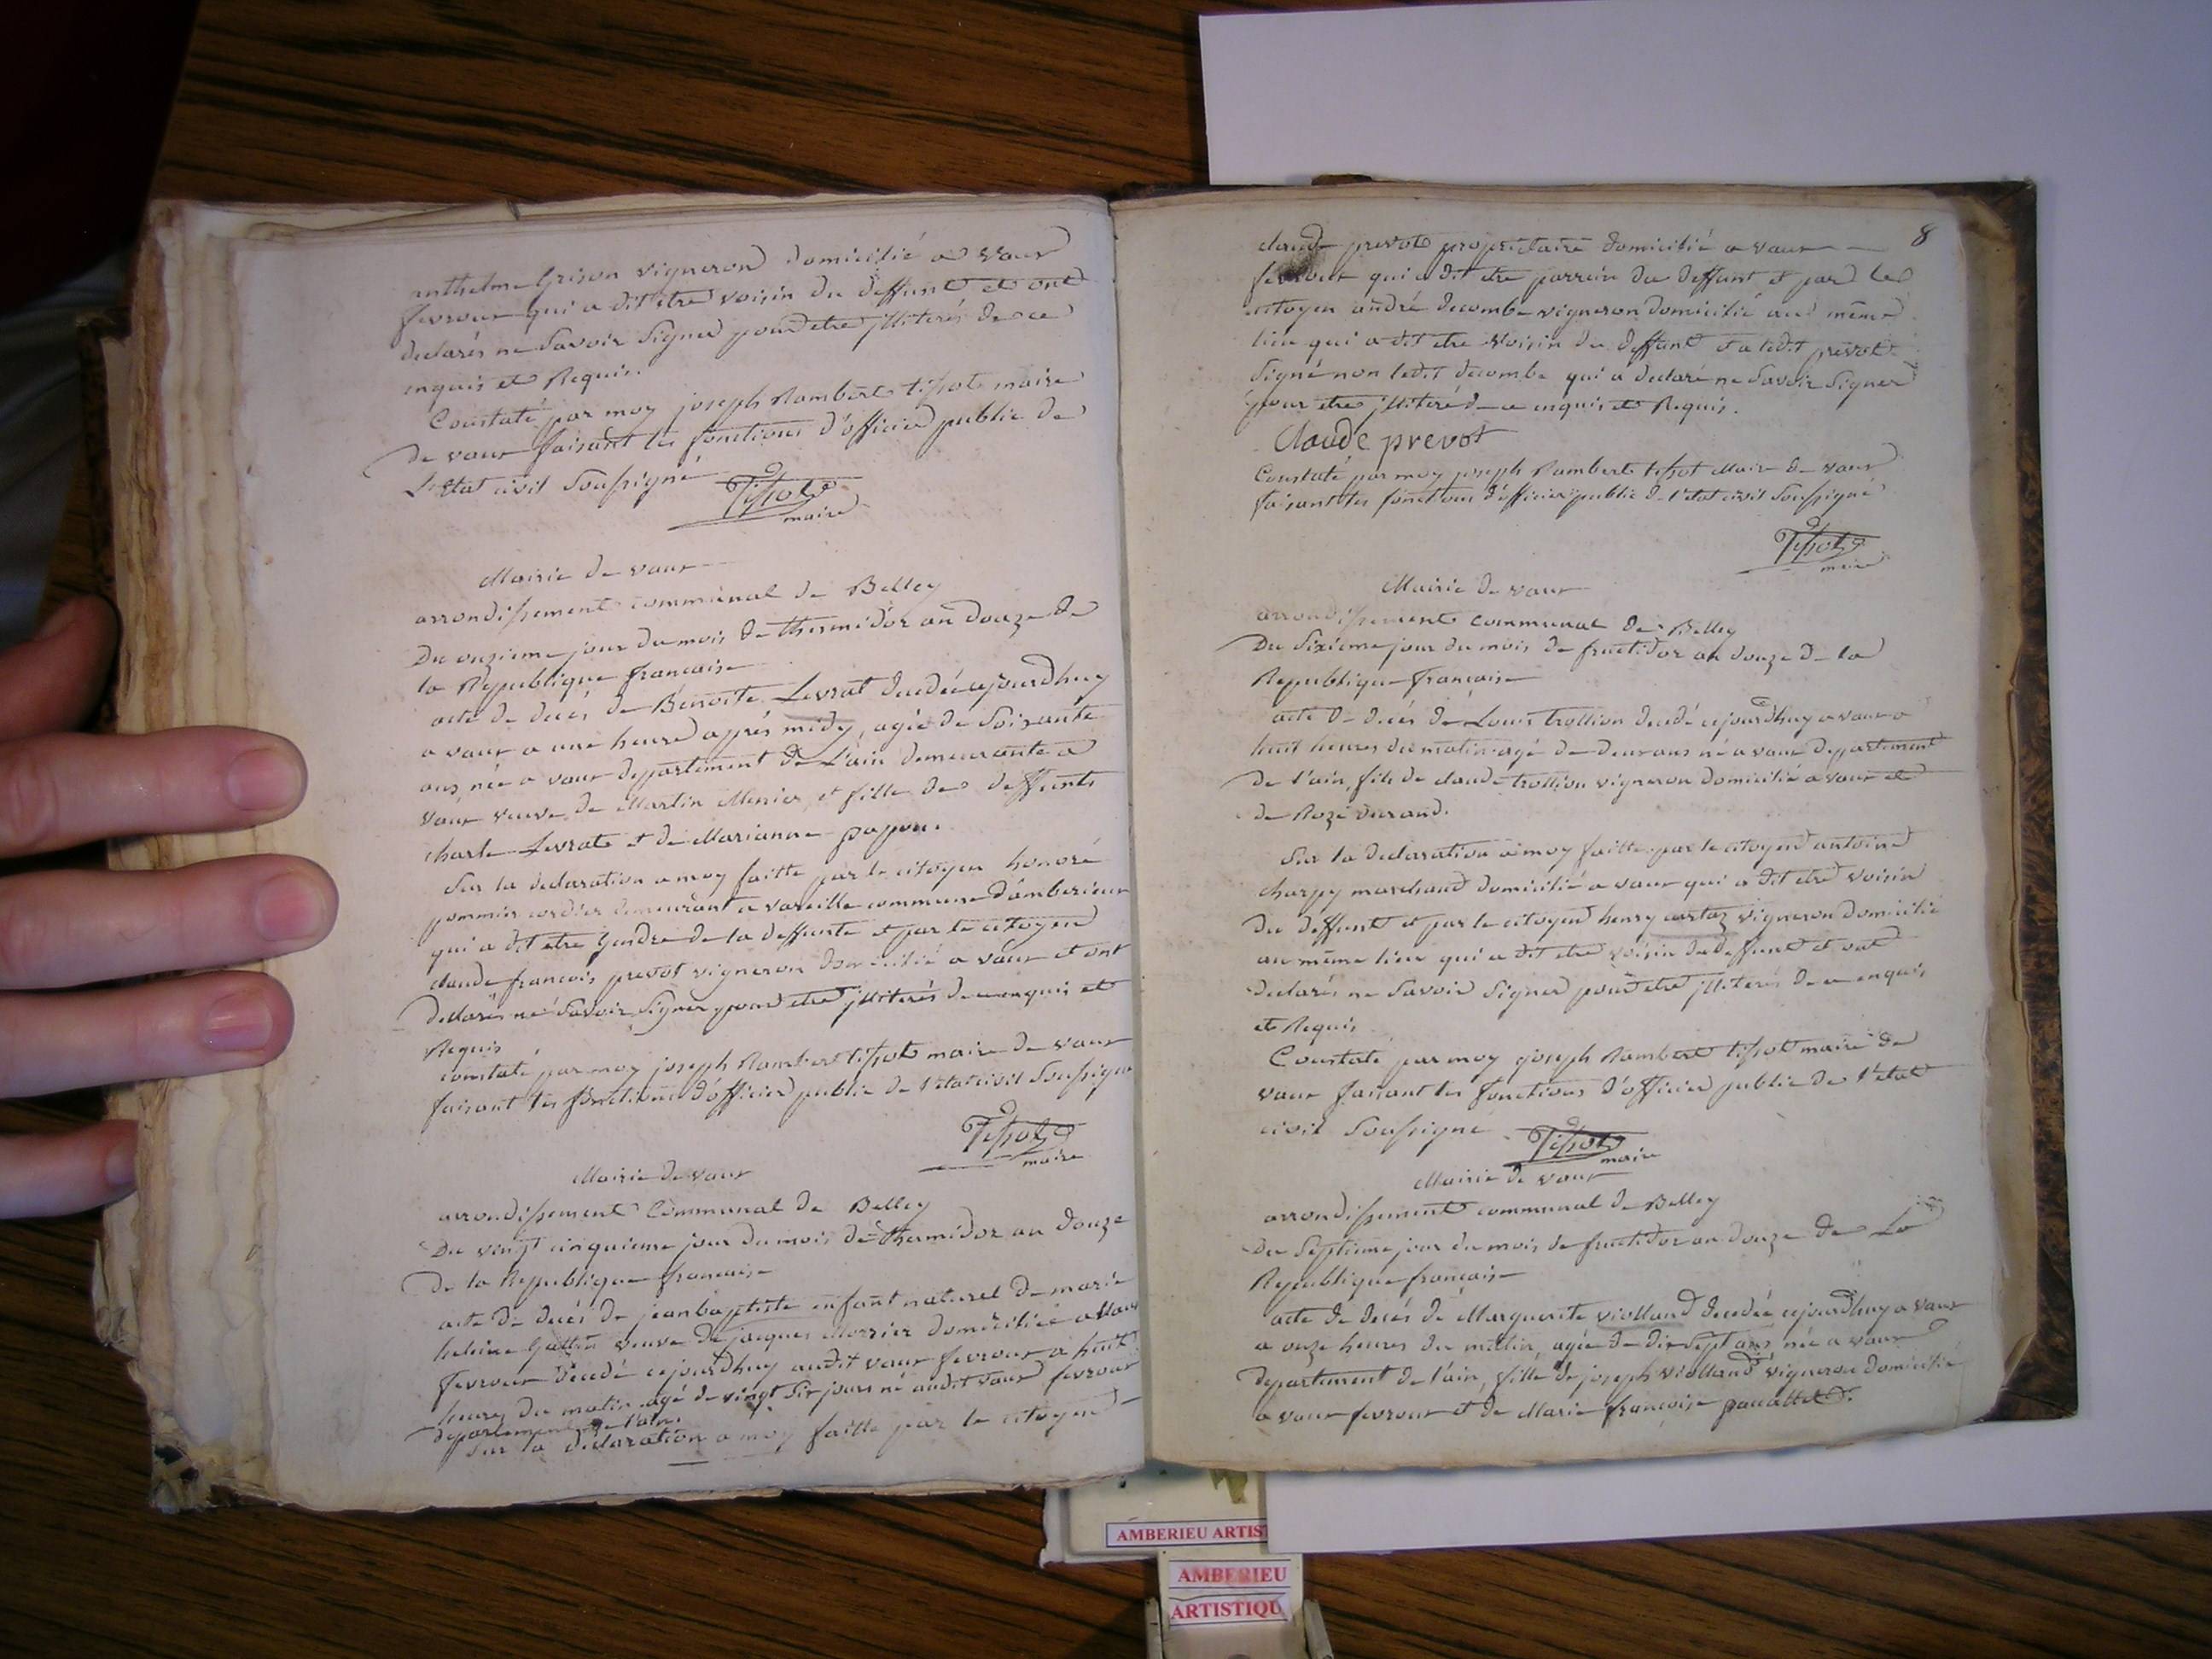 anthelme Grison vigneron domicilié a vaux
fevroux qui a dit etre voisin du deffunt et ont
declarés ne Savoir Signer pour etre jlliterés de ce
enquis et Requis.
Constaté par moy joseph Rambert tissot maire
de vaux faisant les fonctions d'officier public de
L'Etat civil Soussigné
Tissot
maire
Mairie de vaux
arrondissement communal de Belley
Du onzieme jour du mois de thermidor an douze de
la Republique francaise
acte de decés de Benoite Levrat decedée cejourdhuy
a vaux a une heure aprés midy, agée de Soixante
ans, née a vaux departement de L'ain demeurante a
vaux veuve de Martin Menier, et fille des deffunts
charle Levrat et de Marianne papon.
Sur la declaration a moy faitte par le citoyen honoré
pommier cordier demeurant a vareille commune d'amberieux
qui a dit etre Gendre de la deffunte et par le citoyen
claude francois prevot vigneron domicilié a vaux et ont
declarés ne Savoir Signer pour etre jlliterés de ce enquis et
Requis
constaté par moy joseph Rambert tissot maire de vaux
faisant les fonctions d'officier public de l'etat civil Soussigné
Tissot
maire
Mairie de vaux
arrondissement Communal de Belley
Du vingt cinquieme jour du mois de thermidor an douze
de la Republique francaise
acte de decés de jean baptiste enfant naturel de marie
heleine veuve de jacques domiciliée a vaux
fevroux decedé cejourdhuy audit vaux fevroux a huit
heures du matin agé de vingt Six jours né audit vaux fevroux
departement de l'ain.
Sur la declaration a moy faitte par le citoyen
8
claude prevot proprietaire domicilié a vaux
fevroux qui a dit etre parrain du deffunt et par le
citoyen andré decombe vigneron domicilié au même
lieu qui a dit etre voisin du deffunt et a ledit prevot
Signé non ledit decombe qui a declaré ne Savoir Signer
pour etre jlliteré de ce enquis et Requis.
Claude prevot
Constaté par moy joseph Rambert tissot Maire de vaux
faisant les fonctions d'officier public de l'etat civil Soussigné
Tissot
maire
Mairie de vaux
arrondissement communal de Belley
Du Sixieme jour du mois de fructidor an douze de la
Republique francaise
acte de decés de Louis trollion decedé cejourdhuy a vaux a
huit heures du matin agé de deux ans né a vaux departement
de l'ain, fils de claude trollion vigneron domicilié a vaux et
de Roze durand.
Sur la declaration a moy faitte par le citoyen antoine
charpy marchand domicilié a vaux qui a dit etre voisin
du deffunt et par le citoyen henry cartaz vigneron domicilié
au même lieu qui a dit etre voisin du deffunt et ont
declarés ne Savoir Signer pour etre jlliterés de ce enquis
et Requis
Constaté par moy joseph Rambert tissot maire de
vaux faisant les fonctions d'officier public de l'etat
civil Soussigné
Tissot
maire
Mairie de vaux
arrondissement communal de Belley
Du Septieme jour du mois de fructidor an douze de La
Republique francaise
acte de decés de Marguerite violland decedée cejourdhuy a vaux
a onze heures du matin, agée de dix Sept ans née a vaux
departement de l'ain, fille de joseph violland vigneron domicilié
a vaux fevroux et de Marie francoise
AMBERIEU ARTIS
AMBERIEU
ARTISTIQU